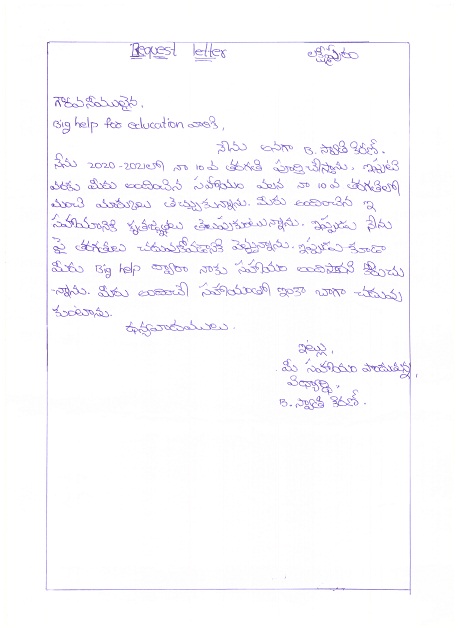 Request letter లక్ష్మీపురం
గౌరవనీయులైన,
Big help for education వారికి,
నేను అనగా B. స్వాతి కిరణ్.
నేను 2020-2021లో నా 10వ తరగతి పూర్తిచేస్తాను. ఇప్పటి
వరకు మీరు అందించిన సహాయం వలన నా 10వ తరగతిలో
మంచి మార్కులు తెచ్చుకున్నాను. మీరు అందించిన ఇ
సహాయానికి కృతజ్ఞతలు తెలుపుకుంటున్నాను. ఇప్పుడు నేను
పై తరగతులు చదువుకోవడానికి వెళ్తున్నాను. ఇప్పుడు కూడా
మీరు Big help ద్వారా నాకు సహాయం అందిస్తారని కోరుచు
న్నాను. మీరు అందించే సహాయంతో ఇంకా బాగా చదువు
కుంటాను.
ధన్యవాదములు.
ఇట్లు,
మీ సహాయం పొందుతున్న,
విధ్యార్థి,
B. స్వాతి కిరణ్.